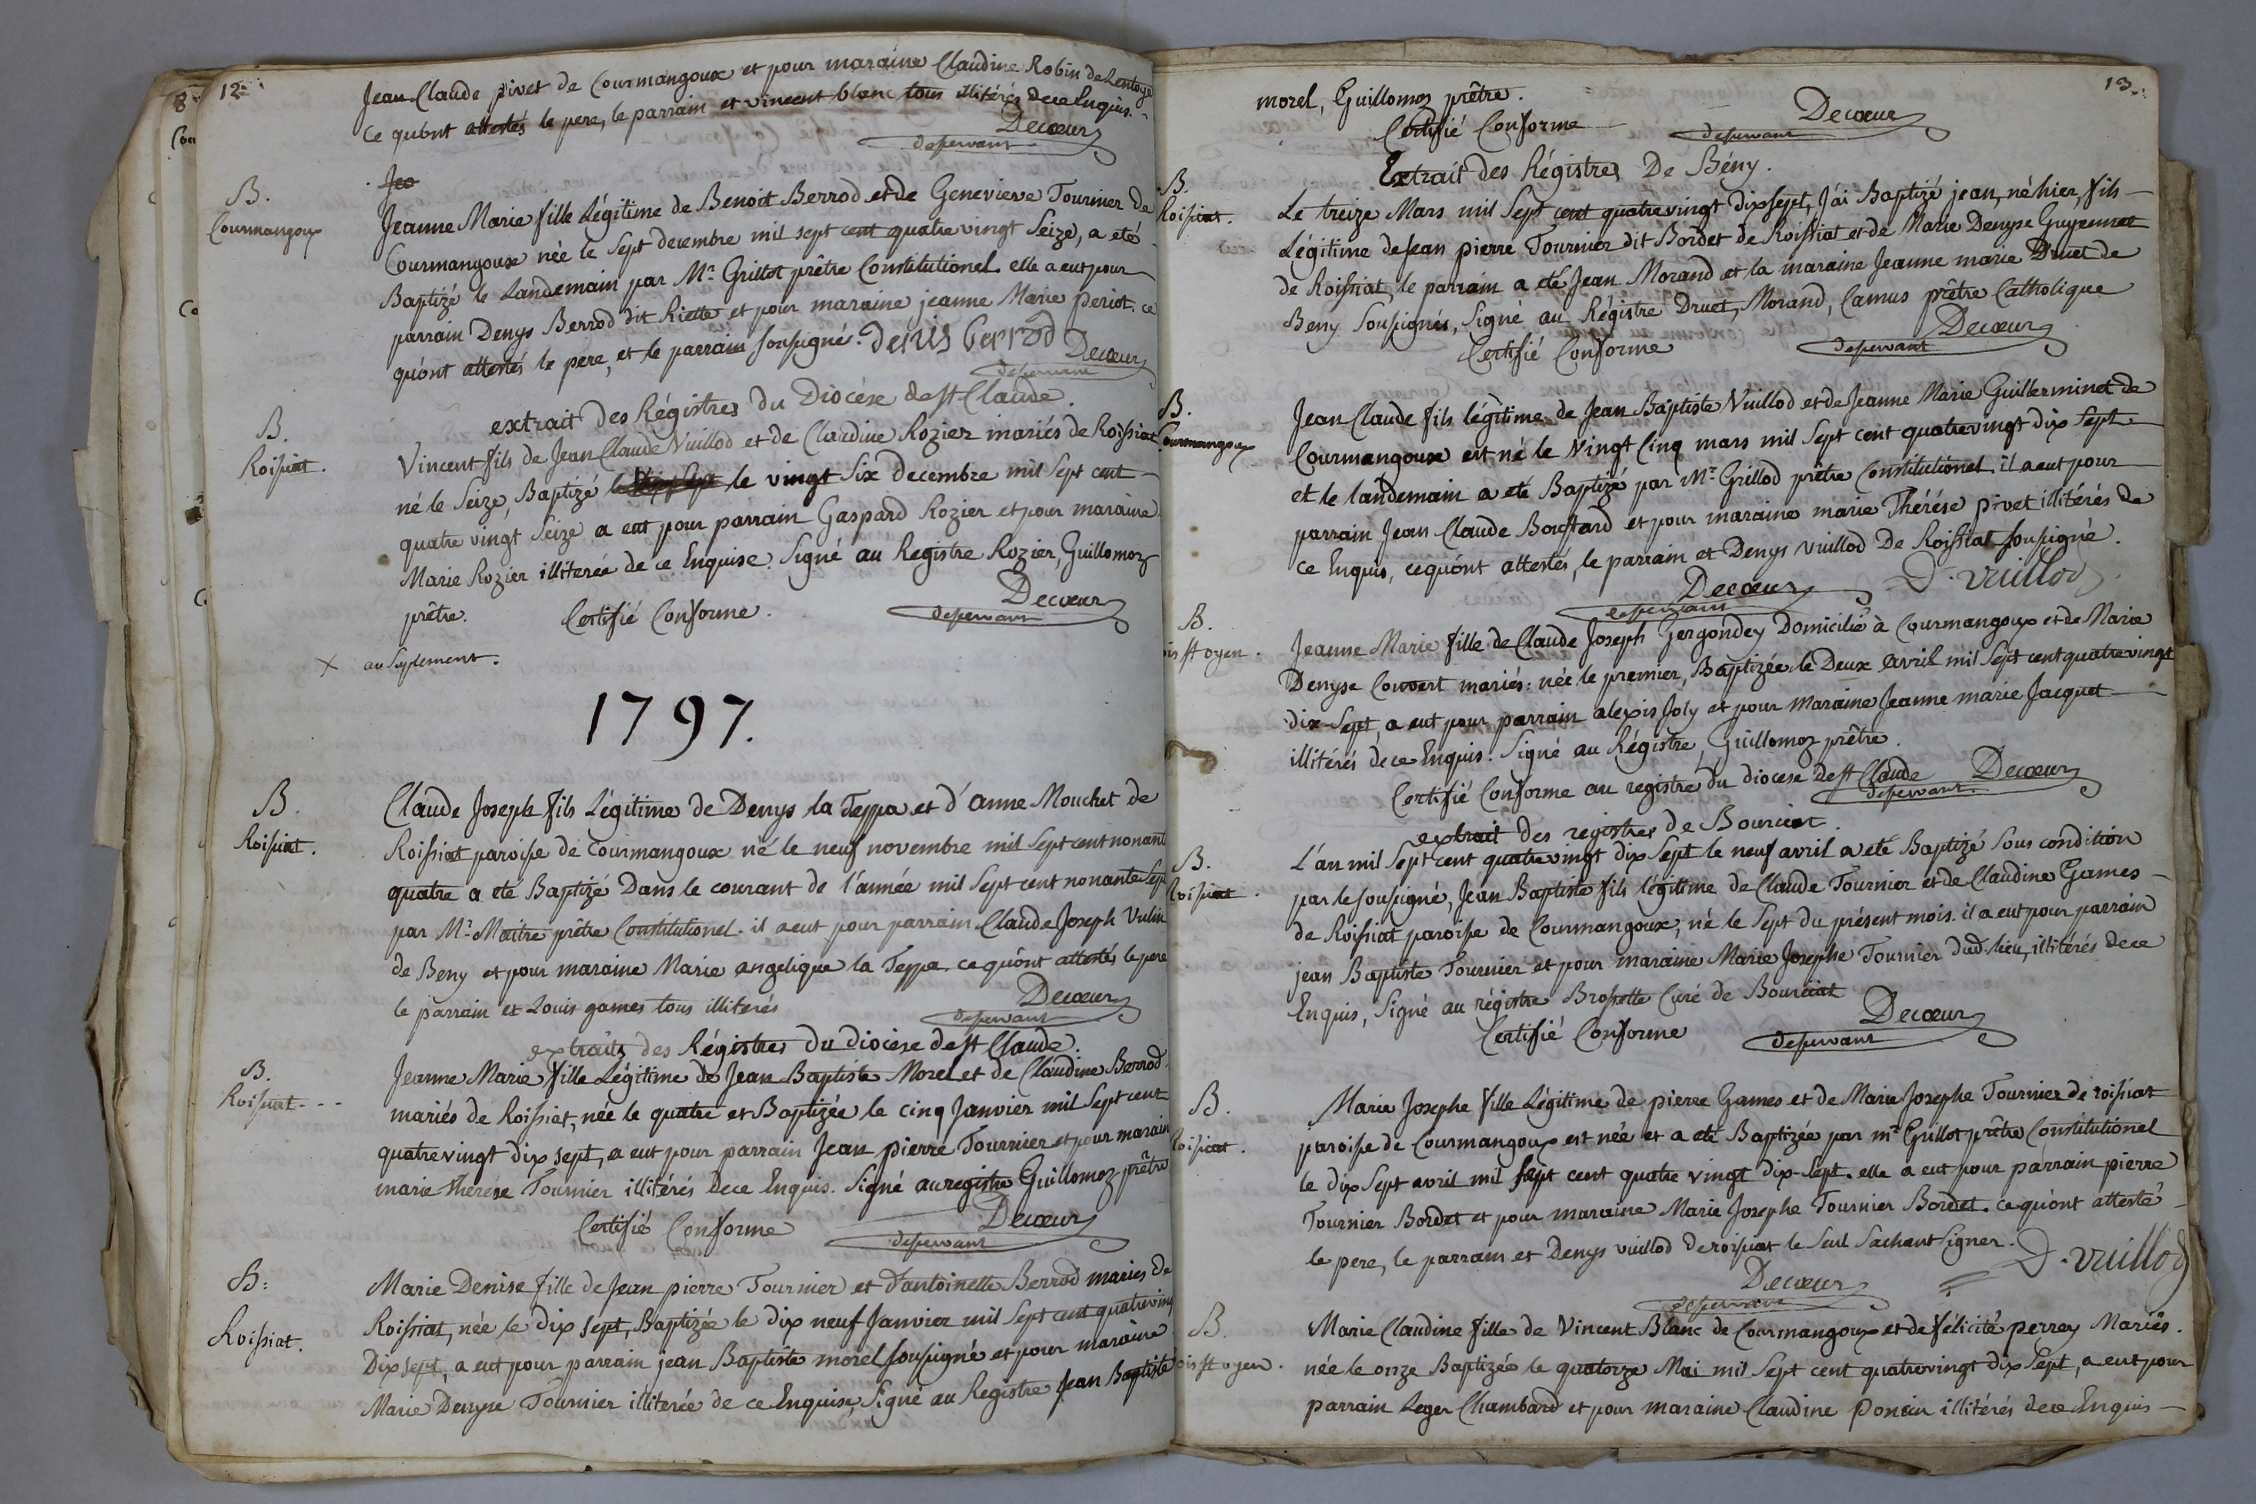 12.
Jean Claude pivet de Courmangoux et pour maraine Claudine Robin de Lentoge
Ce qu'ont attestés le pere, le parrain et vincent blanc tous illitérés de ce Enquis.
Decœur
desservant
Jea
B.
Courmangoux
Jeanne Marie fille Légitime de Benoit Berrod et de Genevieve Tournier de
Courmangoux née le Sept decembre mil sept cent quatre vingt Seize, a eté
Baptizé le Landemain par Mr. Grillot prêtre Constitutionel elle a eut pour
parrain Denys Berrod dit Riette et pour maraine jeanne Marie periot. ce
qu'ont attestés le pere, et le parrain soussigné. denis berrod Decœur
desservant
extrait des Régistres du Diocése de st Claude.
B.
Roissiat.
Vincent fils de Jean Claude Vuillod et de Claudine Rozier mariés de Roissiat
né le Seize, Baptizé le vingt Six decembre mil Sept cent
quatre vingt Seize a eut pour parrain Gaspard Rozier et pour maraine
Marie Rozier illiterée de ce Enquise. Signé au Registre Rozier, Guillomoz
prêtre. Certifié Conforme. Decœur
desservant
+ au suplement.
1797.
B.
Roissiat.
Claude Joseph fils Légitime de Denys la Teppa et d'anne Mouchet de
Roissiat paroisse de Courmangoux né le neuf novembre mil Sept cent nonant
quatre a eté Baptizé Dans le courant de l'année mil Sept cent nonante Sept
par Mr. Maitre prêtre Constitutionel. il a eut pour parrain Claude Joseph Vulin
de Beny et pour maraine Marie angelique la Teppe. ce qu'ont attestés le pere
le parrain et Louis games tous illiterés Decœur
desservant
extraits des Régistres du diocèse de st Claude.
B.
Roissiat - - -
Jeanne Marie fille Légitime de Jean Baptiste Morel et de Claudine Berrod
mariés de Roissiat, née le quatre et Baptizée le cinq Janvier mil Sept cent
quatre vingt dix sept, a eut pour parrain Jean pierre Tournier et pour marain
marie therése Tournier illitérés de ce Enquis. Signé au registre Guillomoz prêtre
Certifié Conforme Decœur
desservant
B:
Roissiat.
Marie Denise fille de Jean pierre Tournier et d'antoinette Berrod mariés de
Roissiat, née le dix sept, Baptizée le dix neuf Janvier mil Sept cent quatre ving
Dix sept, a eut pour parrain jean Baptiste morel soussigné et pour maraine
Marie Denyse Tournier illiterée de ce Enquise, Signé au Registre Jean Baptiste
13.
morel, Guillomoz prêtre.
Certifié Conforme Decœur
desservant
Extrait des Régistres De Bény.
B.
Roissiat.
Le treize Mars mil Sept cent quatre vingt dix sept, J'ai Baptizé jean, né hier, fils
Légitime de Jean pierre Tournier dit Bordet de Roissiat et de Marie Denyse Guyennet
de Roissiat, le parrain a eté Jean Morand et la maraine Jeanne marie Druet de
Beny Soussignés, Signé au Régistre Druet, Morand, Camus prêtre Catholique
Certifié Conforme Decœur
desservant
B.
Courmangoux
Jean Claude fils légitime de Jean Baptiste Vuillod et de Jeanne Marie Guillerminet de
Courmangoux est né le Vingt Cinq mars mil Sept cent quatre vingt dix Sept
et le landemain a eté Baptizé par Mr. Grillod prêtre Constitutionel il a eut pour
parrain Jean Claude Bouffard et pour maraine marie Thérése pivet illitérés de
ce Enquis, ce qu'ont attestés, le parrain et Denys vuillod De Roissiat soussigné.
Decœur D. vuillod
desservant
B.
ois st oyen.
Jeanne Marie fille de Claude Joseph Gergondey Domicilié à Courmangoux et de Marie
Denyse Convert mariés: née le premier, Baptizée le Deux avril mil Sept cent quatre vingt
dix-Sept, a eut pour parrain alexis Joly et pour Maraine Jeanne marie Jacquet
illitérés de ce Enquis. Signé au Régistre, Guillomoz prêtre.
Certifié Conforme au registre du diocese de st Claude Decœur
desservant
extrait des registres de Bourciat.
B.
Roissiat.
L'an mil Sept cent quatre vingt dix Sept le neuf avril a eté Baptizé Sous condition
par le soussigné, Jean Baptiste fils légitime de Claude Tournier et de Claudine Games
de Roissiat paroisse de Courmangoux, né le Sept du présent mois. il a eut pour parrain
jean Baptiste Tournier et pour maraine Marie Josephe Tournier dud. lieu, illitérés de ce
Enquis, Signé au régistre Brossette Curé de Bourciat
Certifié Conforme Decœur
desservant
B.
Roissiat.
Marie Josephe fille Légitime de pierre Games et de Marie Josephe Tournier de roissiat
paroisse de Courmangoux est née et a eté Baptizée par mr Grillot prêtre Constitutionel
le dix Sept avril mil sept cent quatre vingt dix-Sept. elle a eut pour parrain pierre
Tournier Bordet et pour maraine Marie Josephe Tournier Bordet. ce qu'ont attesté
le pere, le parrain et Denys vuillod de roissiat le Seul Sachant Signer. D. vuillod
Decœur
desservant
B.
ois st oyen.
Marie Claudine fille de Vincent Blanc de Courmangoux et de félicité perrey Mariés.
née le onze Baptizée le quatorze Mai mil Sept cent quatre vingt dix Sept, a eut pour
parrain Leger Chambard et pour maraine Claudine Poncin illitérés de ce Enquis